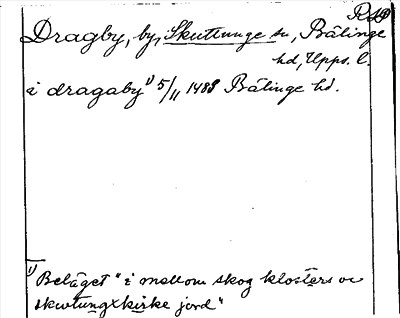 Dragby, by, Skuttunge sn, Bälinge
hd, Upps. l.
i dragaby¹⁾ 5/11 1488 Bälinge hd.
¹⁾ Beläget "i mellom skog klosters oc
skwtungxkirke jord"